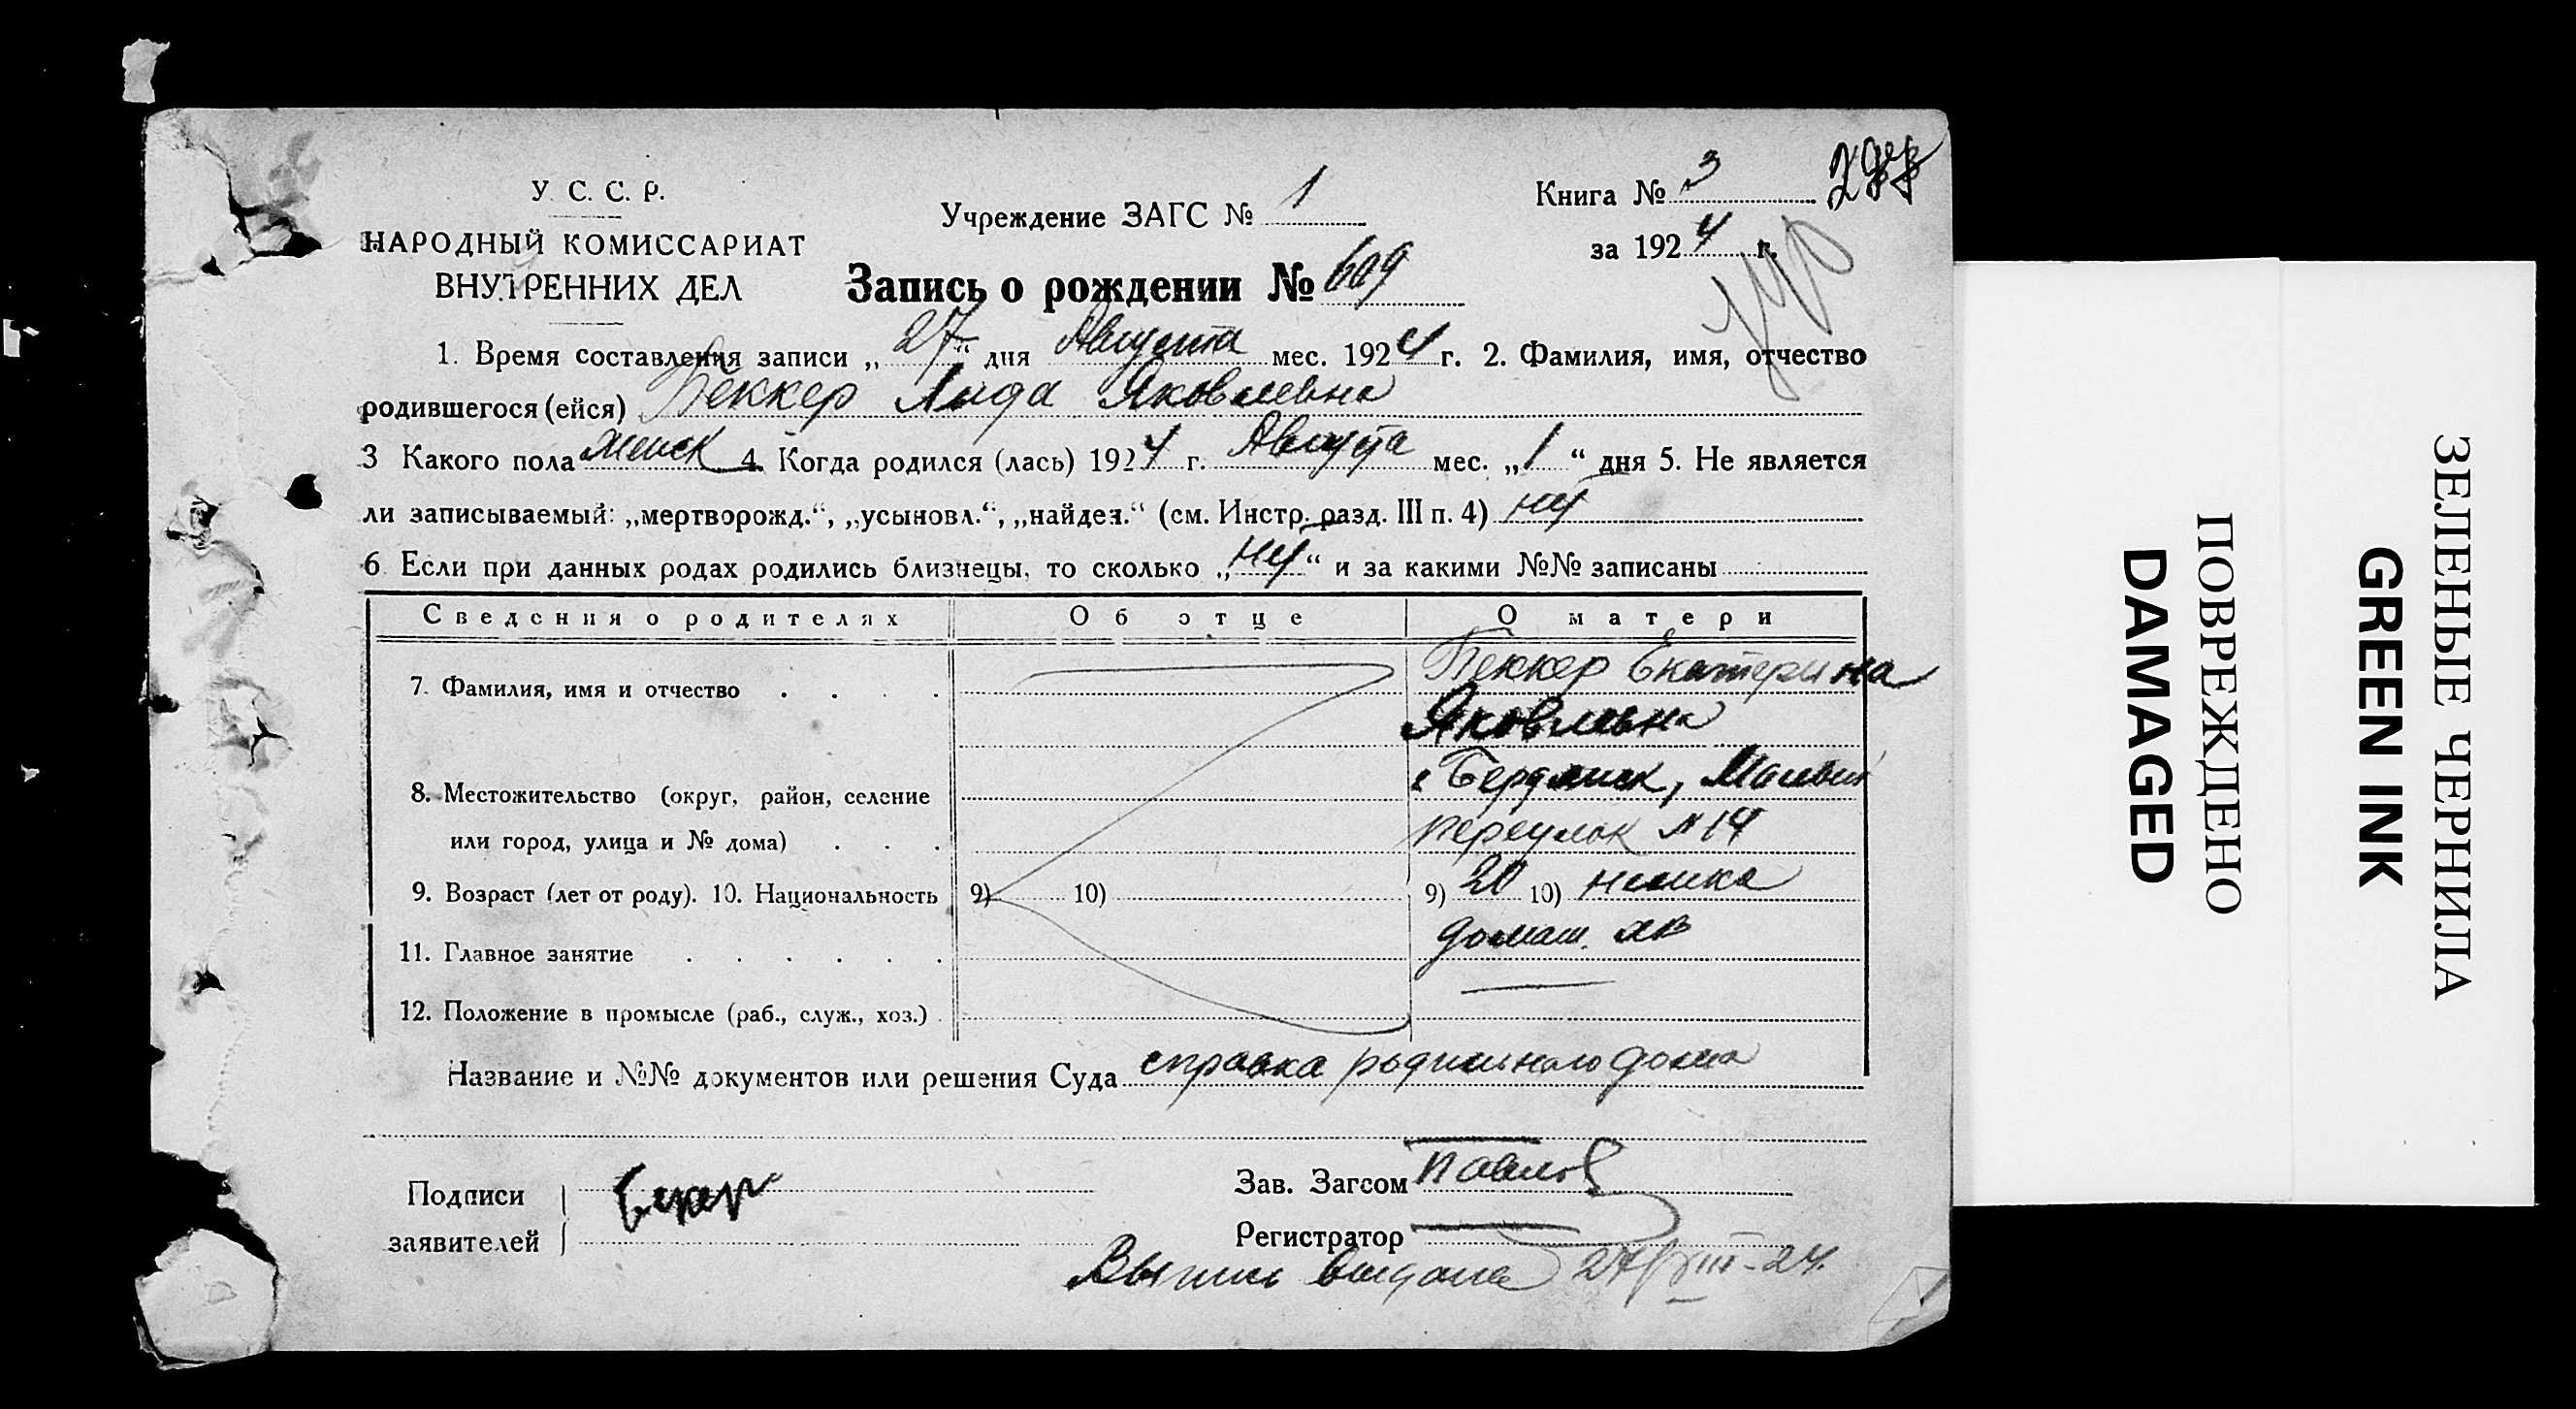 У. С. С. Р.
НАРОДНЫЙ КОМИССАРИАТ
ВНУТРЕННИХ ДЕЛ
Учреждение ЗАГС № 1
Книга № 3
за 1924 г.
Запись о рождении № 609
1. Время составления записи „27“ дня Августа мес. 1924 г. 2. Фамилия, имя, отчество
родившегося (ейся) Беккер Лида Яковлевна
3 Какого пола женск 4. Когда родился (лась) 1924 г. Августа мес. „1“ дня 5. Не является
ли записываемый: „мертворожд.“, „усыновл.“, „найден.“ (см. Инстр. разд. III п. 4) нет
6 Если при данных родах родились близнецы, то сколько „нет“ и за какими №№ записаны
Сведения о родителях Об отце О матери
7. Фамилия, имя и отчество Беккер Екатерина
Яковлевна
8. Местожительство (округ, район, селение г Бердянск,
или город, улица и № дома) переулок № 14
9. Возраст (лет от роду). 10. Национальность 9) 10) 9) 20 10) немка
11. Главное занятие домаш. хоз
12. Положение в промысле (раб., служ., хоз.)
Название и №№ документов или решения Суда справка родильного дома
Подписи
заявителей
Зав. Загсом Павлов
Регистратор
Выпись выдана 27/VIII-24.
ПОВРЕЖДЕНО
DAMAGED
ЗЕЛЕНЫЕ ЧЕРНИЛА
GREEN INK